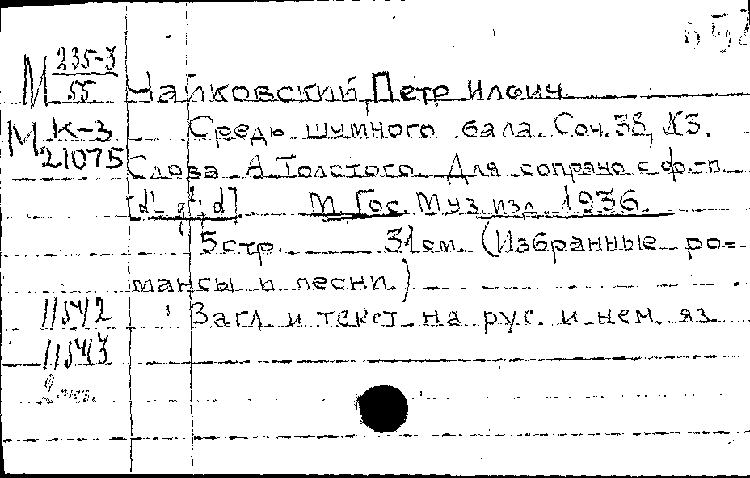 М 235-3
55
Чайковский, Петр Ильич
М К-3
21075
Средь шумного бала. Соч. 38, №3.
Слова А. Толстого. Для сопрано с ф.-п.
М. Гос. Муз. изд. 1936.
5 стр. 31 см. (Избранные ро-
мансы и песни)
11542
Загл. и текст на рус. и нем. яз.
11543
2 экз.